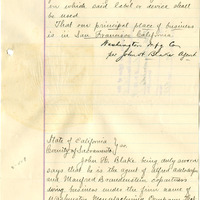 in which said label or device shall
be used
That our principal place of business
is in San Francisco California.
Washington Mfg Com
per John H Blake Agent
State of California
County of Sacramento
John H. Blake, being duly sworn
says that he is the agent of Alfred
and Manfred Brandenstein copartners
doing business under the firm name of
Washington Manufacturing Company that